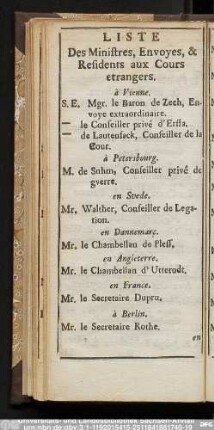 LISTE
Des Ministres, Envoyes, &
Residents aux Cours
etrangers.
à Vienne.
S. E. Mgr. le Baron de Zech, En-
voye extraordinaire.
— le Conseiller privé d'Erffa.
— de Lautensack, Conseiller de la
Cour.
à Petersbourg.
M. de Suhm, Conseiller privé de
gverre.
en Svede.
Mr. Walther, Conseiller de Lega-
tion.
en Dannemarc.
Mr. le Chambellan de Pless,
en Angleterre.
Mr. le Chambellan d'Utterodt,
en France.
Mr. le Secretaire Dupru.
à Berlin.
Mr. le Secretaire Rothe.
en
Universitäts- und Landesbibliothek Sachsen-Anhalt